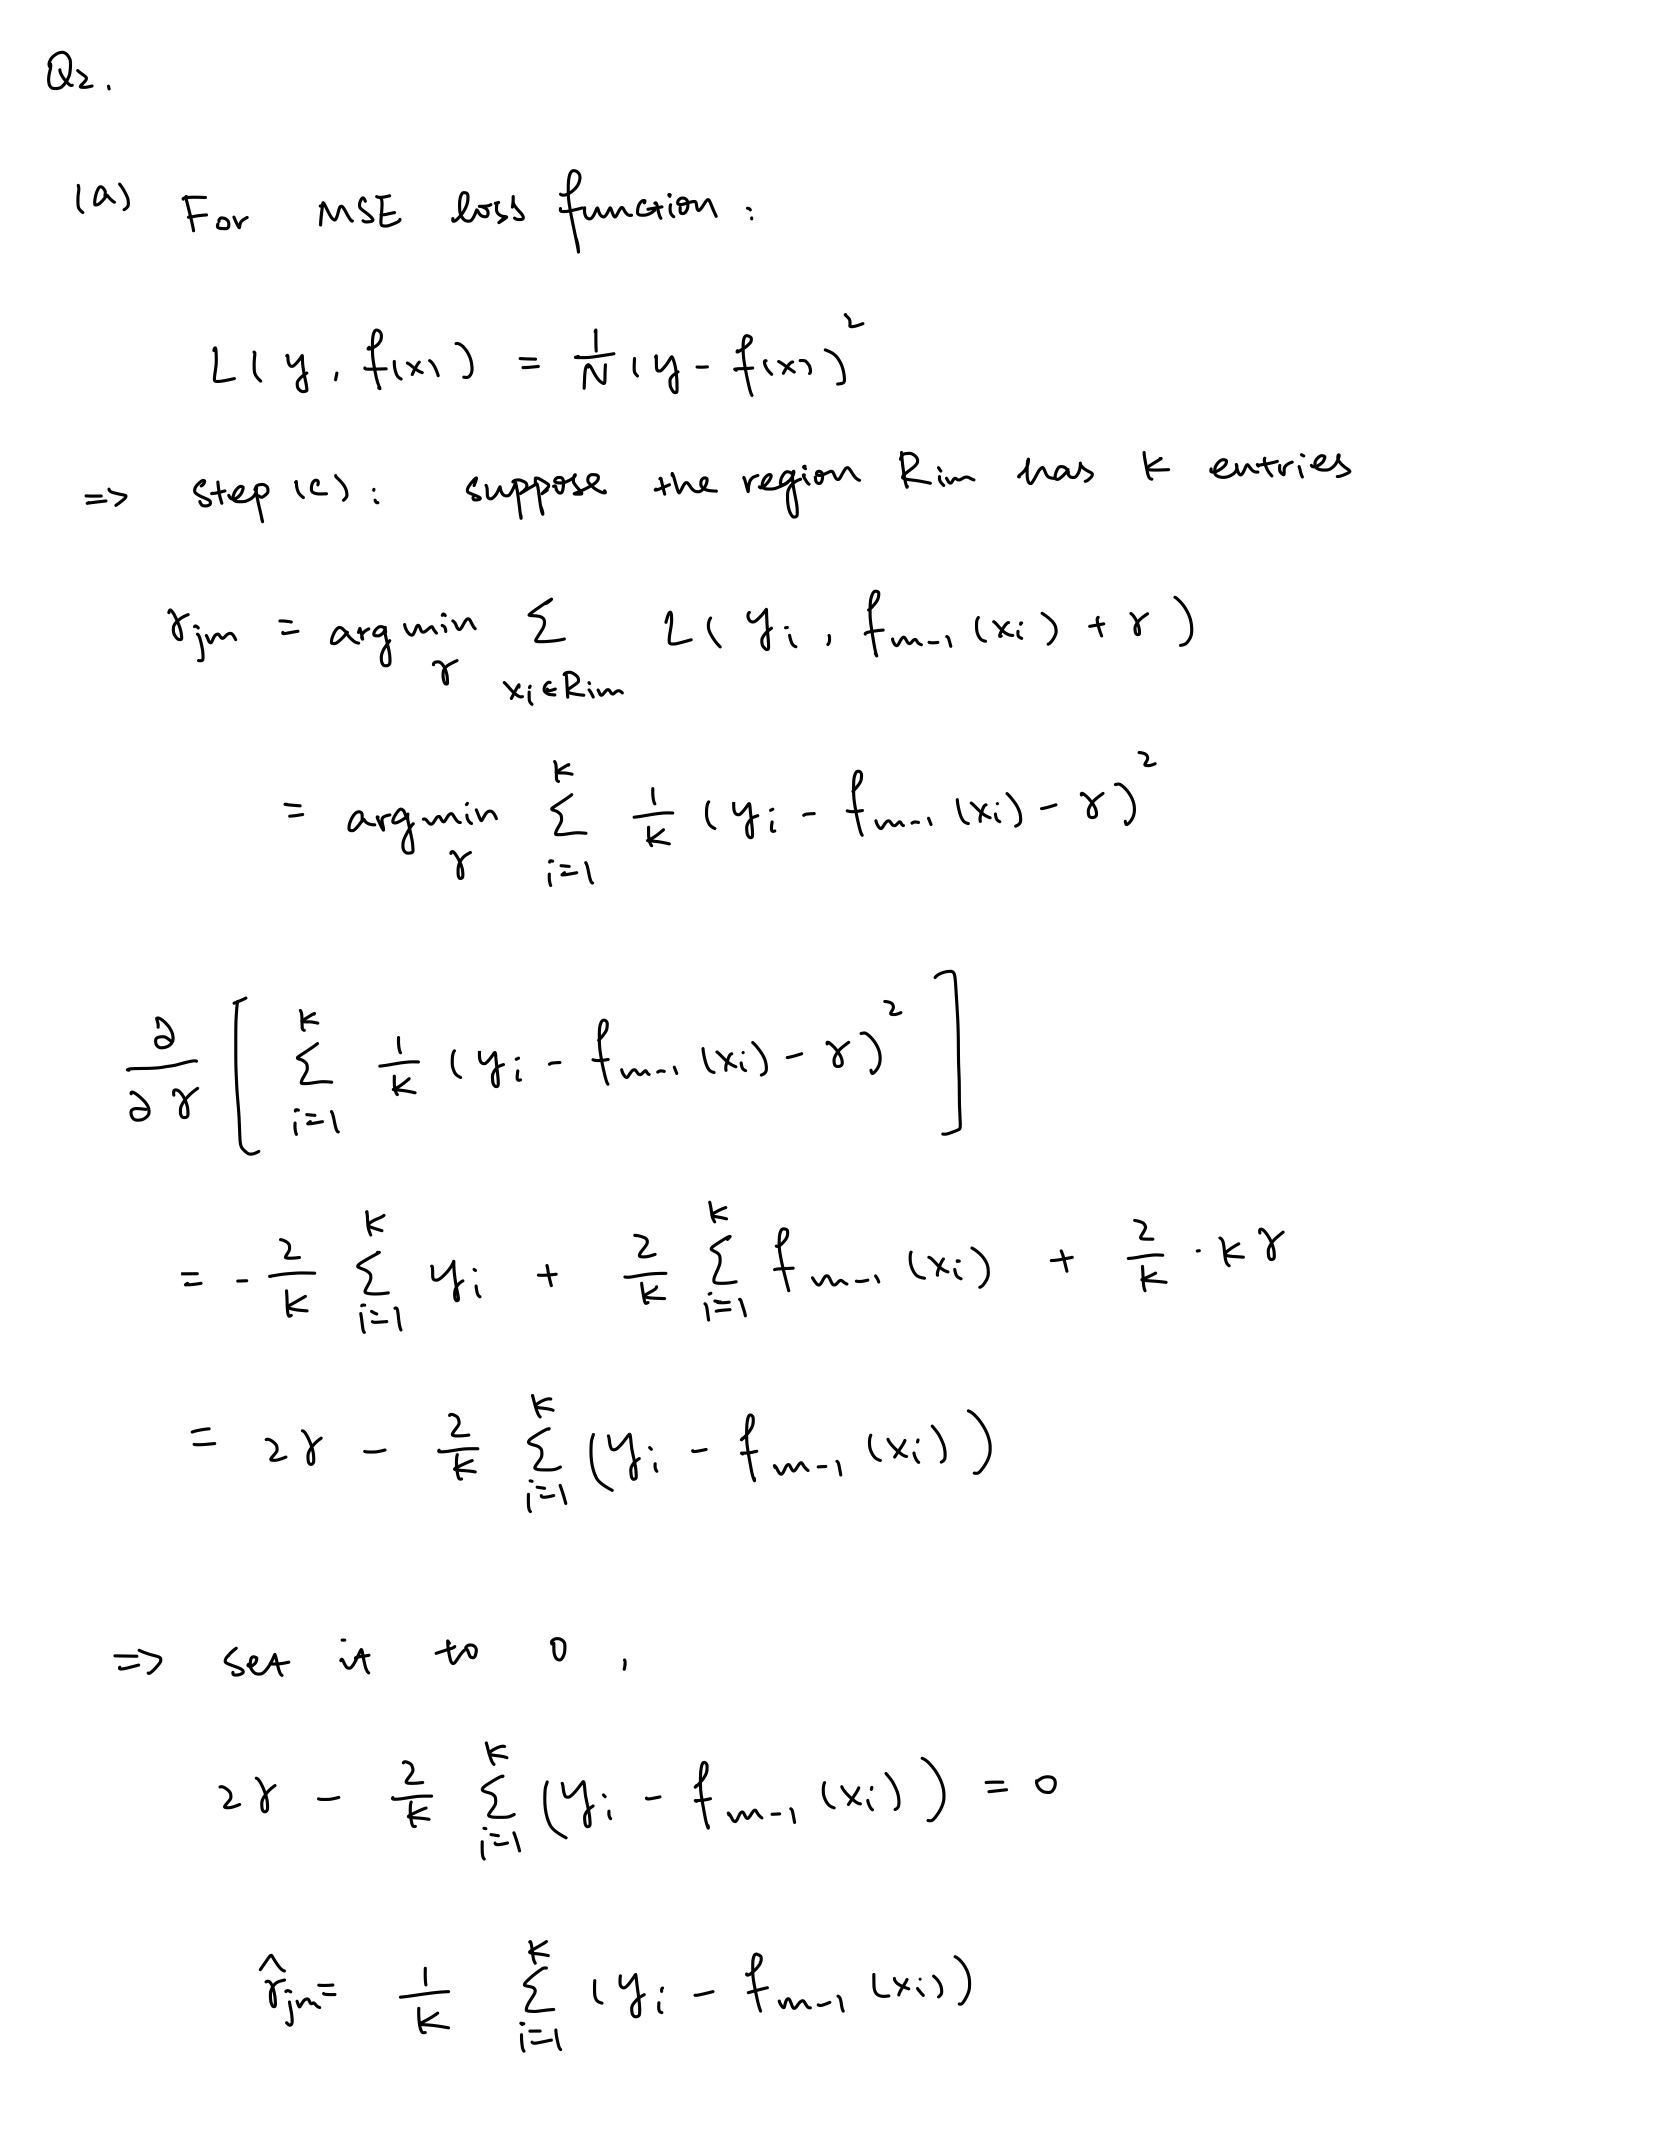 Q2.
(a) For MSE loss function :
L( y , f(x) ) = 1/N (y - f(x))²
=> step (c) : suppose the region Rim has K entries
γ_jm = argmin_γ Σ_{xi∈Rim} L( y_i , f_{m-1}(x_i) + γ )
= argmin_γ Σ_{i=1}^{K} 1/K (y_i - f_{m-1}(x_i) - γ)²
∂/∂γ [ Σ_{i=1}^{K} 1/K (y_i - f_{m-1}(x_i) - γ)² ]
= - 2/K Σ_{i=1}^{K} y_i + 2/K Σ_{i=1}^{K} f_{m-1}(x_i) + 2/K · K γ
= 2γ - 2/K Σ_{i=1}^{K} (y_i - f_{m-1}(x_i))
=> set it to 0 ,
2γ - 2/K Σ_{i=1}^{K} (y_i - f_{m-1}(x_i)) = 0
γ̂_jm = 1/K Σ_{i=1}^{K} (y_i - f_{m-1}(x_i))